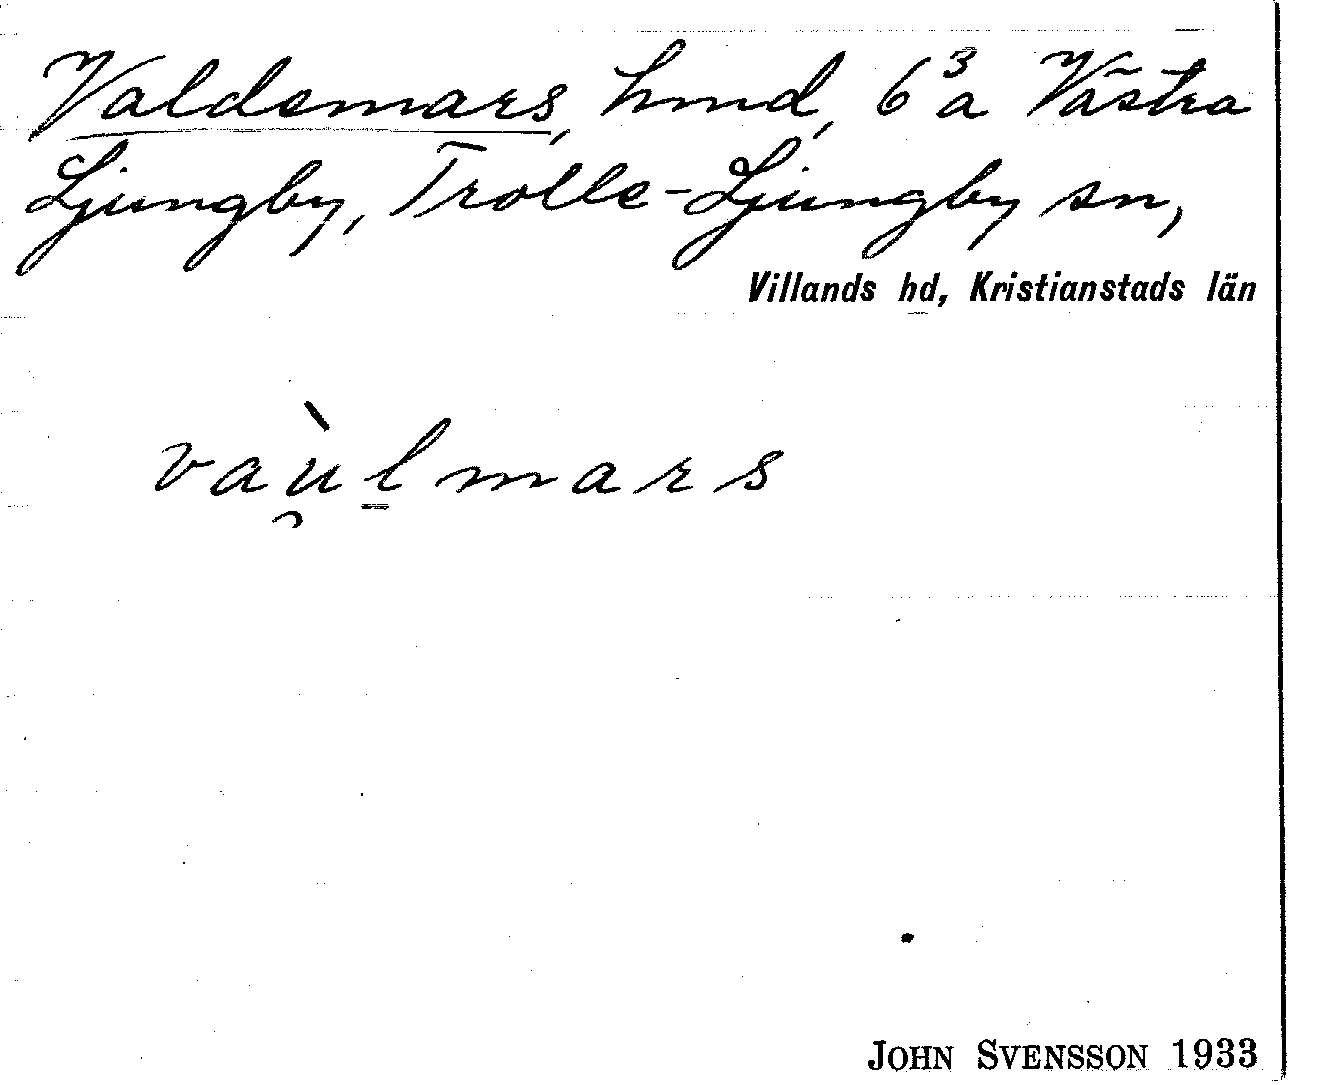 Valdemars, hmd, 6³a Västra
Ljungby, Trolle-Ljungby sn,
Villands hd, Kristianstads län
vaù̯l̠mars
JOHN SVENSSON 1933